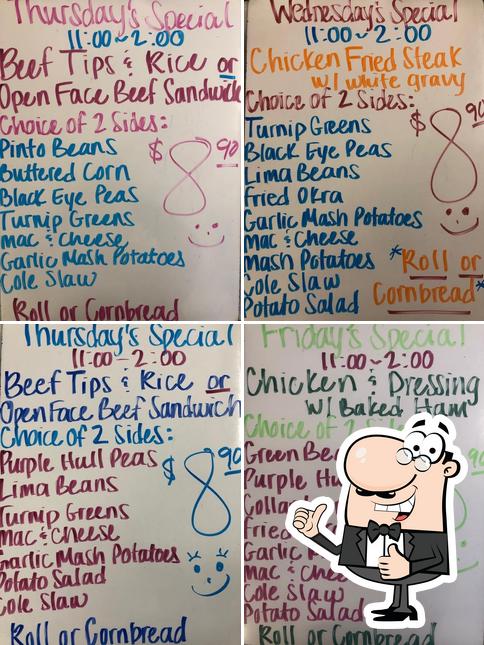 Thursday's Special
11:00~2:00
Beef Tips & Rice or
Open Face Beef Sandwich
Choice of 2 Sides:
Pinto Beans
$8.90
Buttered Corn
Black Eye Peas
Turnip Greens
Mac & Cheese
Garlic Mash Potatoes
Cole Slaw
Roll or Cornbread
Wednesday's Special
11:00~2:00
Chicken Fried Steak
w/ white gravy
Choice of 2 Sides:
$8.90
Turnip Greens
Black Eye Peas
Lima Beans
Fried Okra
Garlic Mash Potatoes
Mac & Cheese
Mash Potatoes
*Roll or
Cole Slaw
Cornbread*
Potato Salad
Thursday's Special
11:00~2:00
Beef Tips & Rice or
Open Face Beef Sandwich
Choice of 2 Sides:
Purple Hull Peas
$8.90
Lima Beans
Turnip Greens
Mac & Cheese
Garlic Mash Potatoes
Potato Salad
Cole Slaw
Roll or Cornbread
Friday's Special
11:00~2:00
Chicken & Dressing
w/ Baked Ham
Choice of 2
Green
Purple
Fried
Garlic
Mac &
Cole Slaw
Potato Salad
Roll or Cornbread